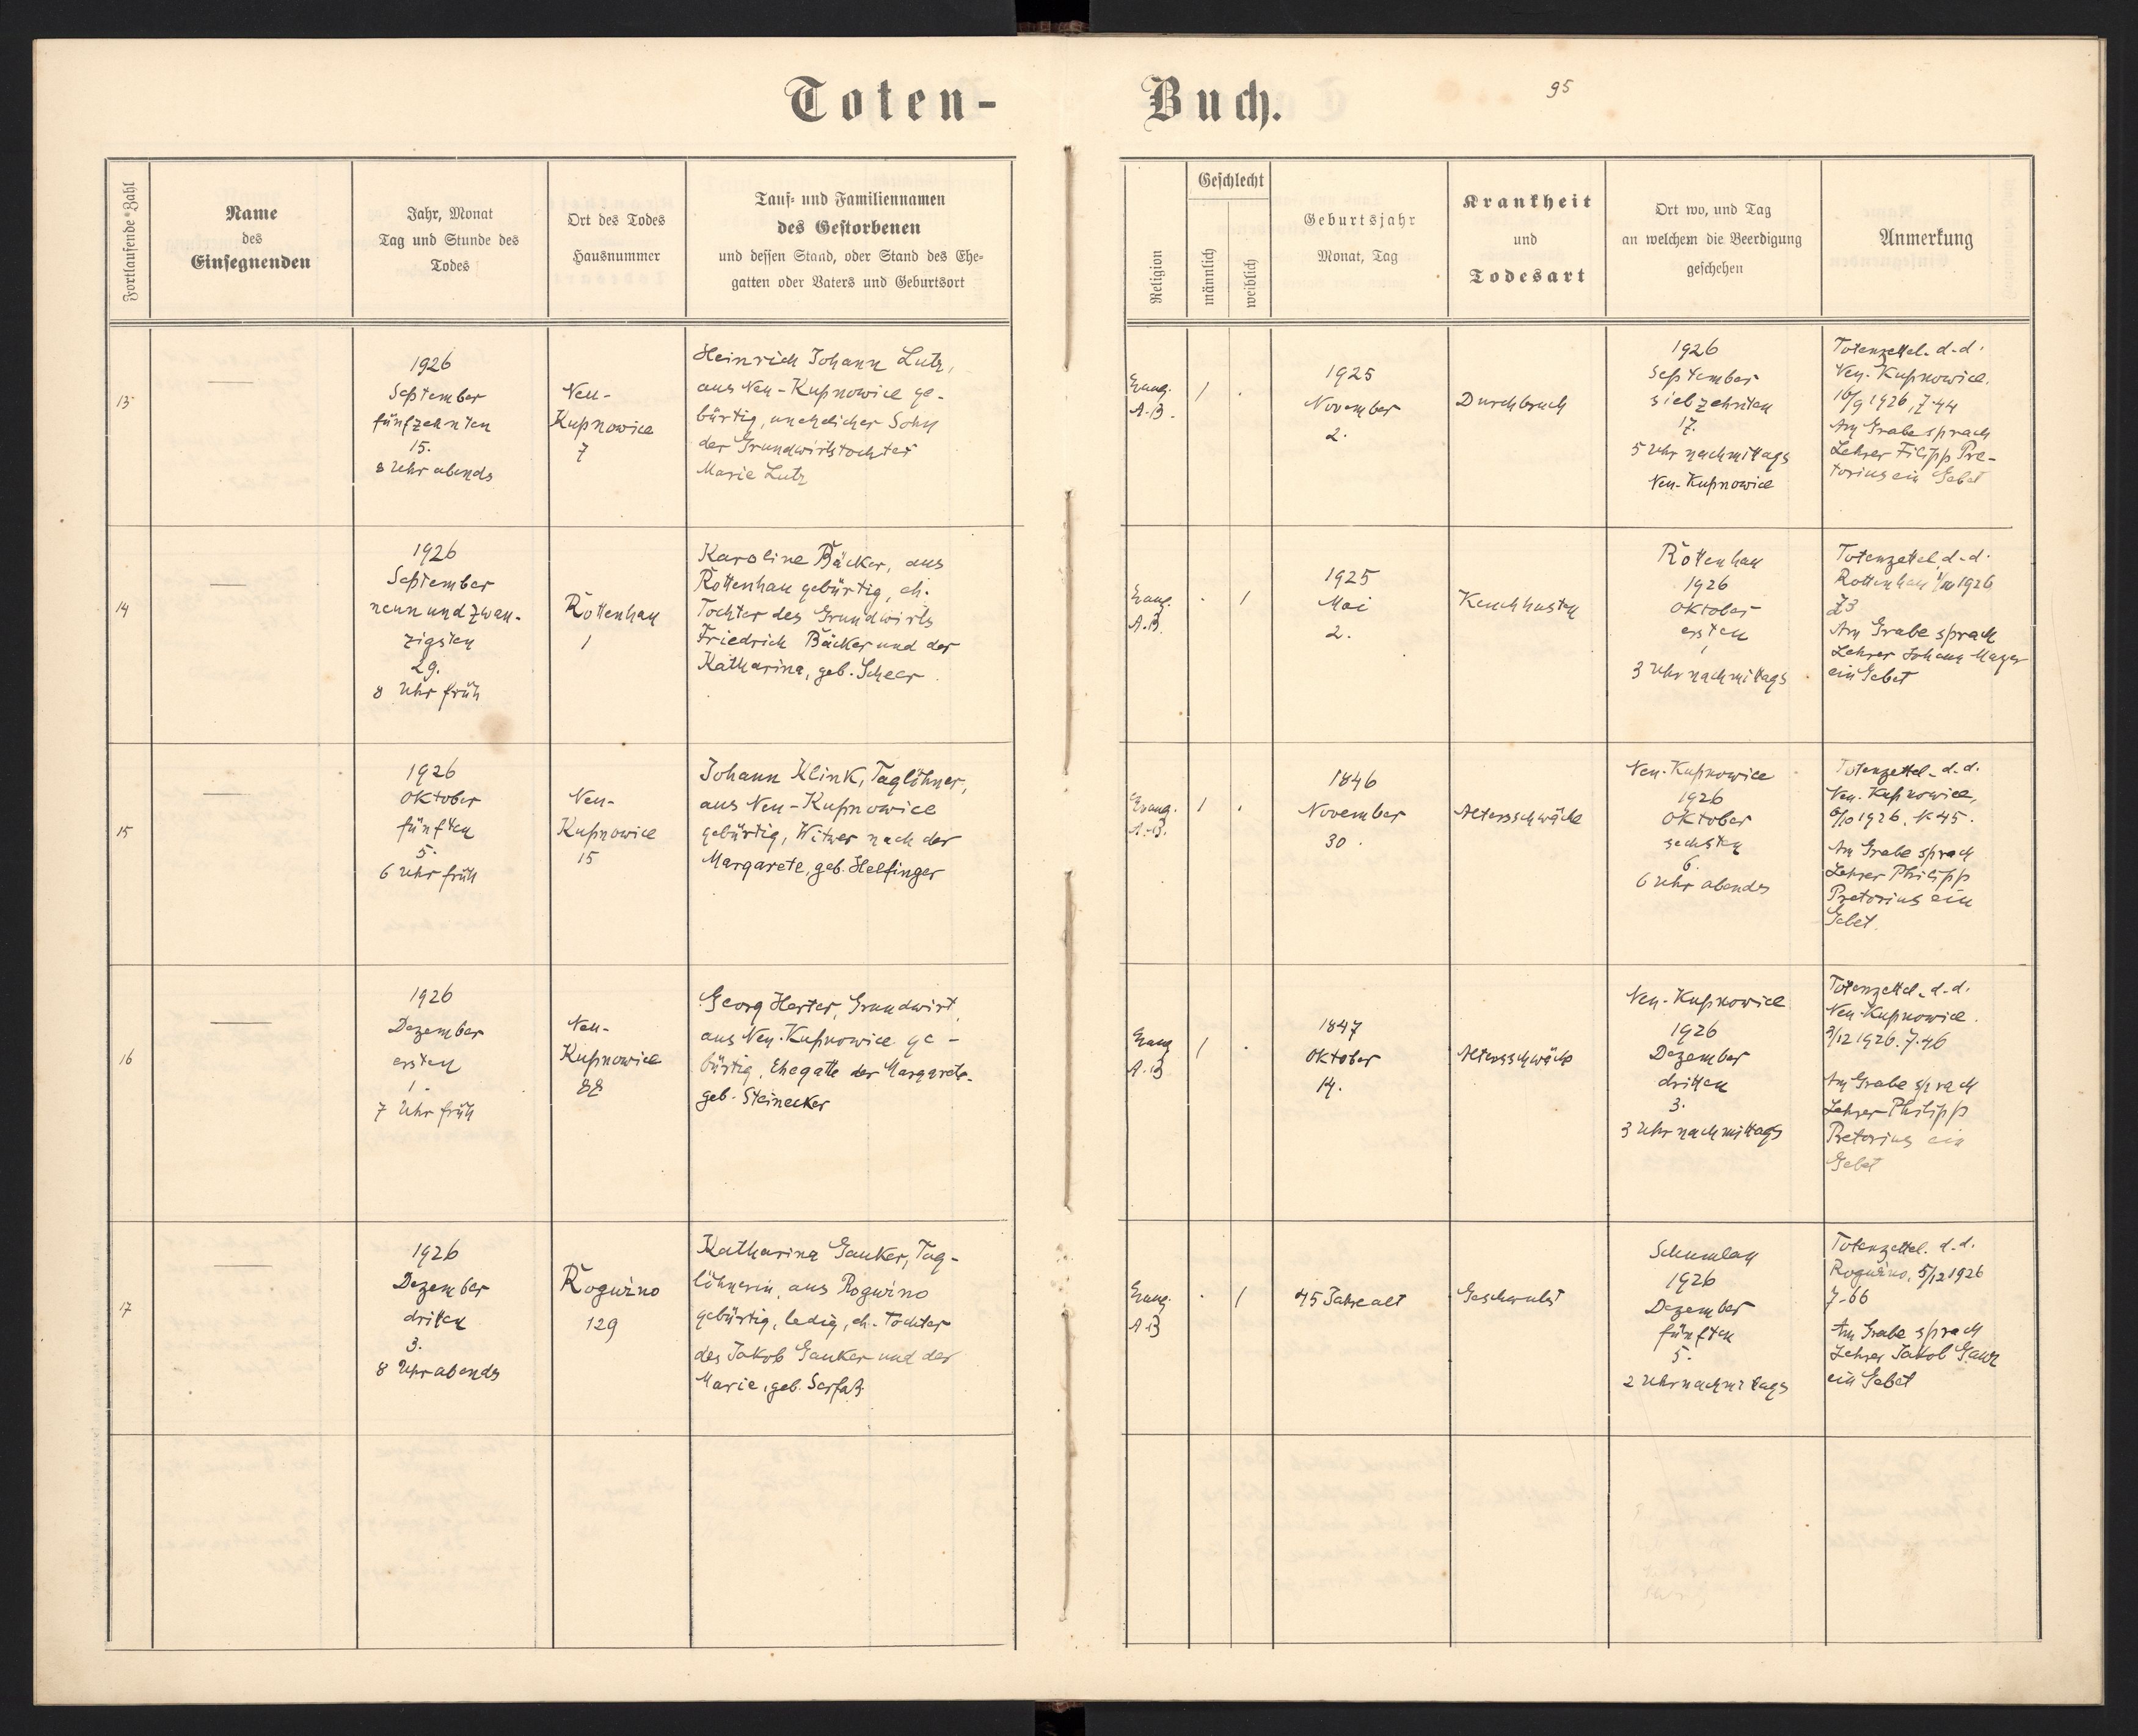 Toten-
Buch.
95
Fortlaufende Zahl
Name
des
Einsegnenden
Jahr, Monat
Tag und Stunde des
Todes
Ort des Todes
Hausnummer
Tauf- und Familiennamen
des Gestorbenen
und dessen Stand, oder Stand des Ehe-
gatten oder Vaters und Geburtsort
Religion
Geschlecht
männlich
weiblich
Geburtsjahr
Monat, Tag
Krankheit
und
Todesart
Ort wo, und Tag
an welchem die Beerdigung
geschehen
Anmerkung
13
1926
September
fünfzehnten
15.
8 Uhr abends
Neu-
Kupnowice
7
Heinrich Johann Lutz,
aus Neu-Kupnowice ge-
bürtig, unehelicher Sohn
der Grundwirtstochter
Marie Lutz
Evang.
A.B.
1
1925
November
2.
Durchbruch
1926
September
siebzehnten
17.
5 Uhr nachmittags
Neu-Kupnowice
Totenzettel d.d.
Neu-Kupnowice,
16/9 1926, Z.44
Am Grabe sprach
Lehrer Filipp Pre-
torius ein Gebet
14
1926
September
neun und zwan-
zigsten
29.
8 Uhr früh
Rottenhan
1
Karoline Bäcker, aus
Rottenhan gebürtig, eh.
Tochter des Grundwirts
Friedrich Bäcker und der
Katharina, geb. Scheer
Evang.
A.B.
1
1925
Mai
2.
Keuchhusten
Rottenhan
1926
Oktober
ersten
1
3 Uhr nachmittags
Totenzettel d.d.
Rottenhan 1/10 1926
Z3
Am Grabe sprach
Lehrer Johann Mayer
ein Gebet
15
1926
Oktober
fünften
5.
6 Uhr früh
Neu-
Kupnowice
15
Johann Klink, Taglöhner,
aus Neu-Kupnowice
gebürtig, Witwer nach der
Margarete, geb. Helfinger
Evang.
A.B.
1
1846
November
30.
Altersschwäche
Neu-Kupnowice
1926
Oktober
sechsten
6.
6 Uhr abends
Totenzettel d.d.
Neu-Kupnowice,
6/10 1926, 45.
Am Grabe sprach
Lehrer Philipp
Pretorius ein
Gebet.
16
1926
Dezember
ersten
1.
7 Uhr früh
Neu-
Kupnowice
88
Georg Herter, Grundwirt,
aus Neu-Kupnowice ge-
bürtig, Ehegatte der Margarete,
geb. Steinecker
Evang
A.B
1
1847
Oktober
14.
Altersschwäche
Neu-Kupnowice
1926
Dezember
dritten
3.
3 Uhr nachmittags
Totenzettel d.d.
Neu-Kupnowice.
3/12 1926. Z.46
Am Grabe sprach
Lehrer Philipp
Pretorius ein
Gebet
17
1926
Dezember
dritten
3.
8 Uhr abends
Roguźno
129
Katharina Ganker, Tag-
löhnerin, aus Roguźno
gebürtig, ledig, eh. Tochter
des Jakob Ganker und der
Marie, geb. Serfaß
Evang.
A.B
1
45 Jahre alt
Geschwulst
Schumlau
1926
Dezember
fünften
5.
2 Uhr nachmittags
Totenzettel d.d.
Roguźno, 5/12 1926
Z.66
Am Grabe sprach
Lehrer Jakob
ein Gebet